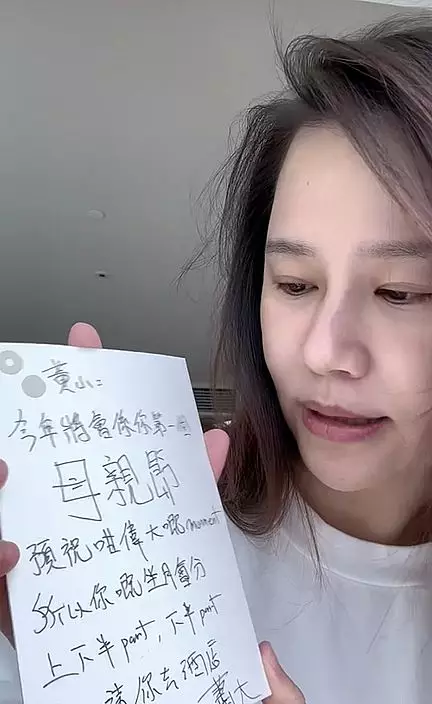 黃小:
今年將會係你第一個
母親節
預祝咁偉大嘅moment
所以你嘅坐月會分
上下半part,下半part
請你去酒店
蕭大